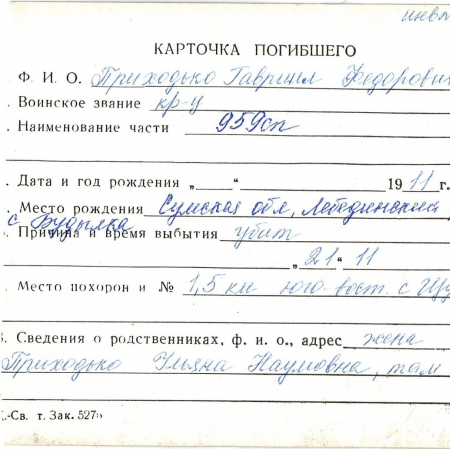 инвл
КАРТОЧКА ПОГИБШЕГО
. Ф. И. О. Приходько Гавриил Федорович
. Воинское звание кр-ц
. Наименование части 959сп
. Дата и год рождения „ “ 1911 г.
. Место рождения Сумская обл, Лебединский
с Будылка
. Причина и время выбытия убит
„21“ 11
. Место похорон и № 1,5 км юго-вост. с
3. Сведения о родственниках, ф. и. о., адрес жена
Приходько Ульяна Наумовна, там
.-Св. т. Зак. 527